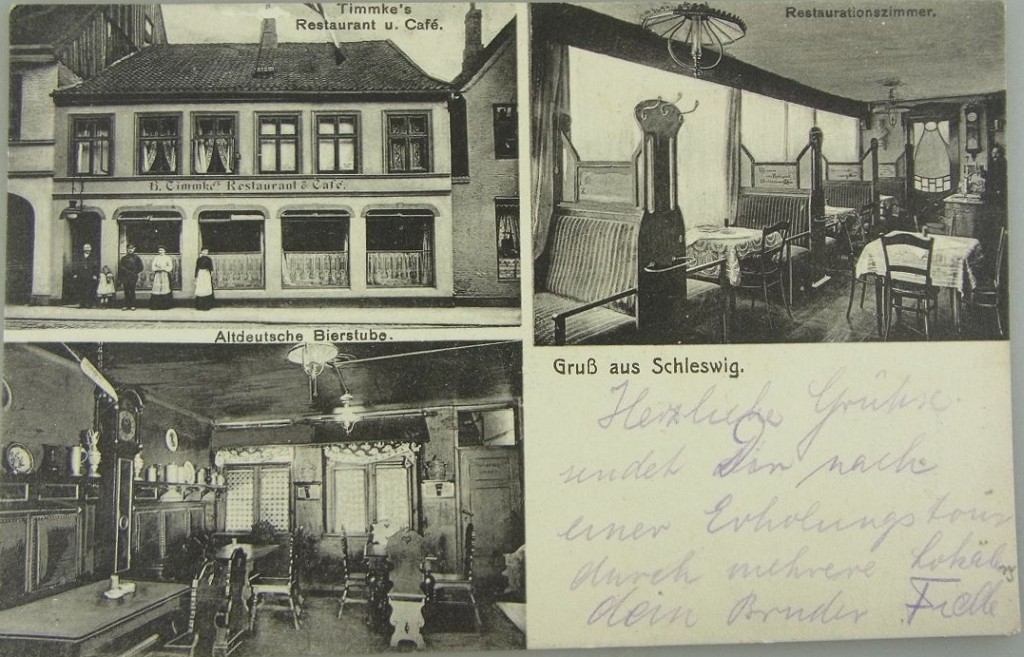 Timmke's
Restaurant u. Café.
H. Timmke's Restaurant & Café.
Restaurationszimmer.
Altdeutsche Bierstube.
Gruß aus Schleswig.
Herzliche Grühse
sendet Dir nach
einer Erholungstour
durch mehrere Lokäle
dein Bruder